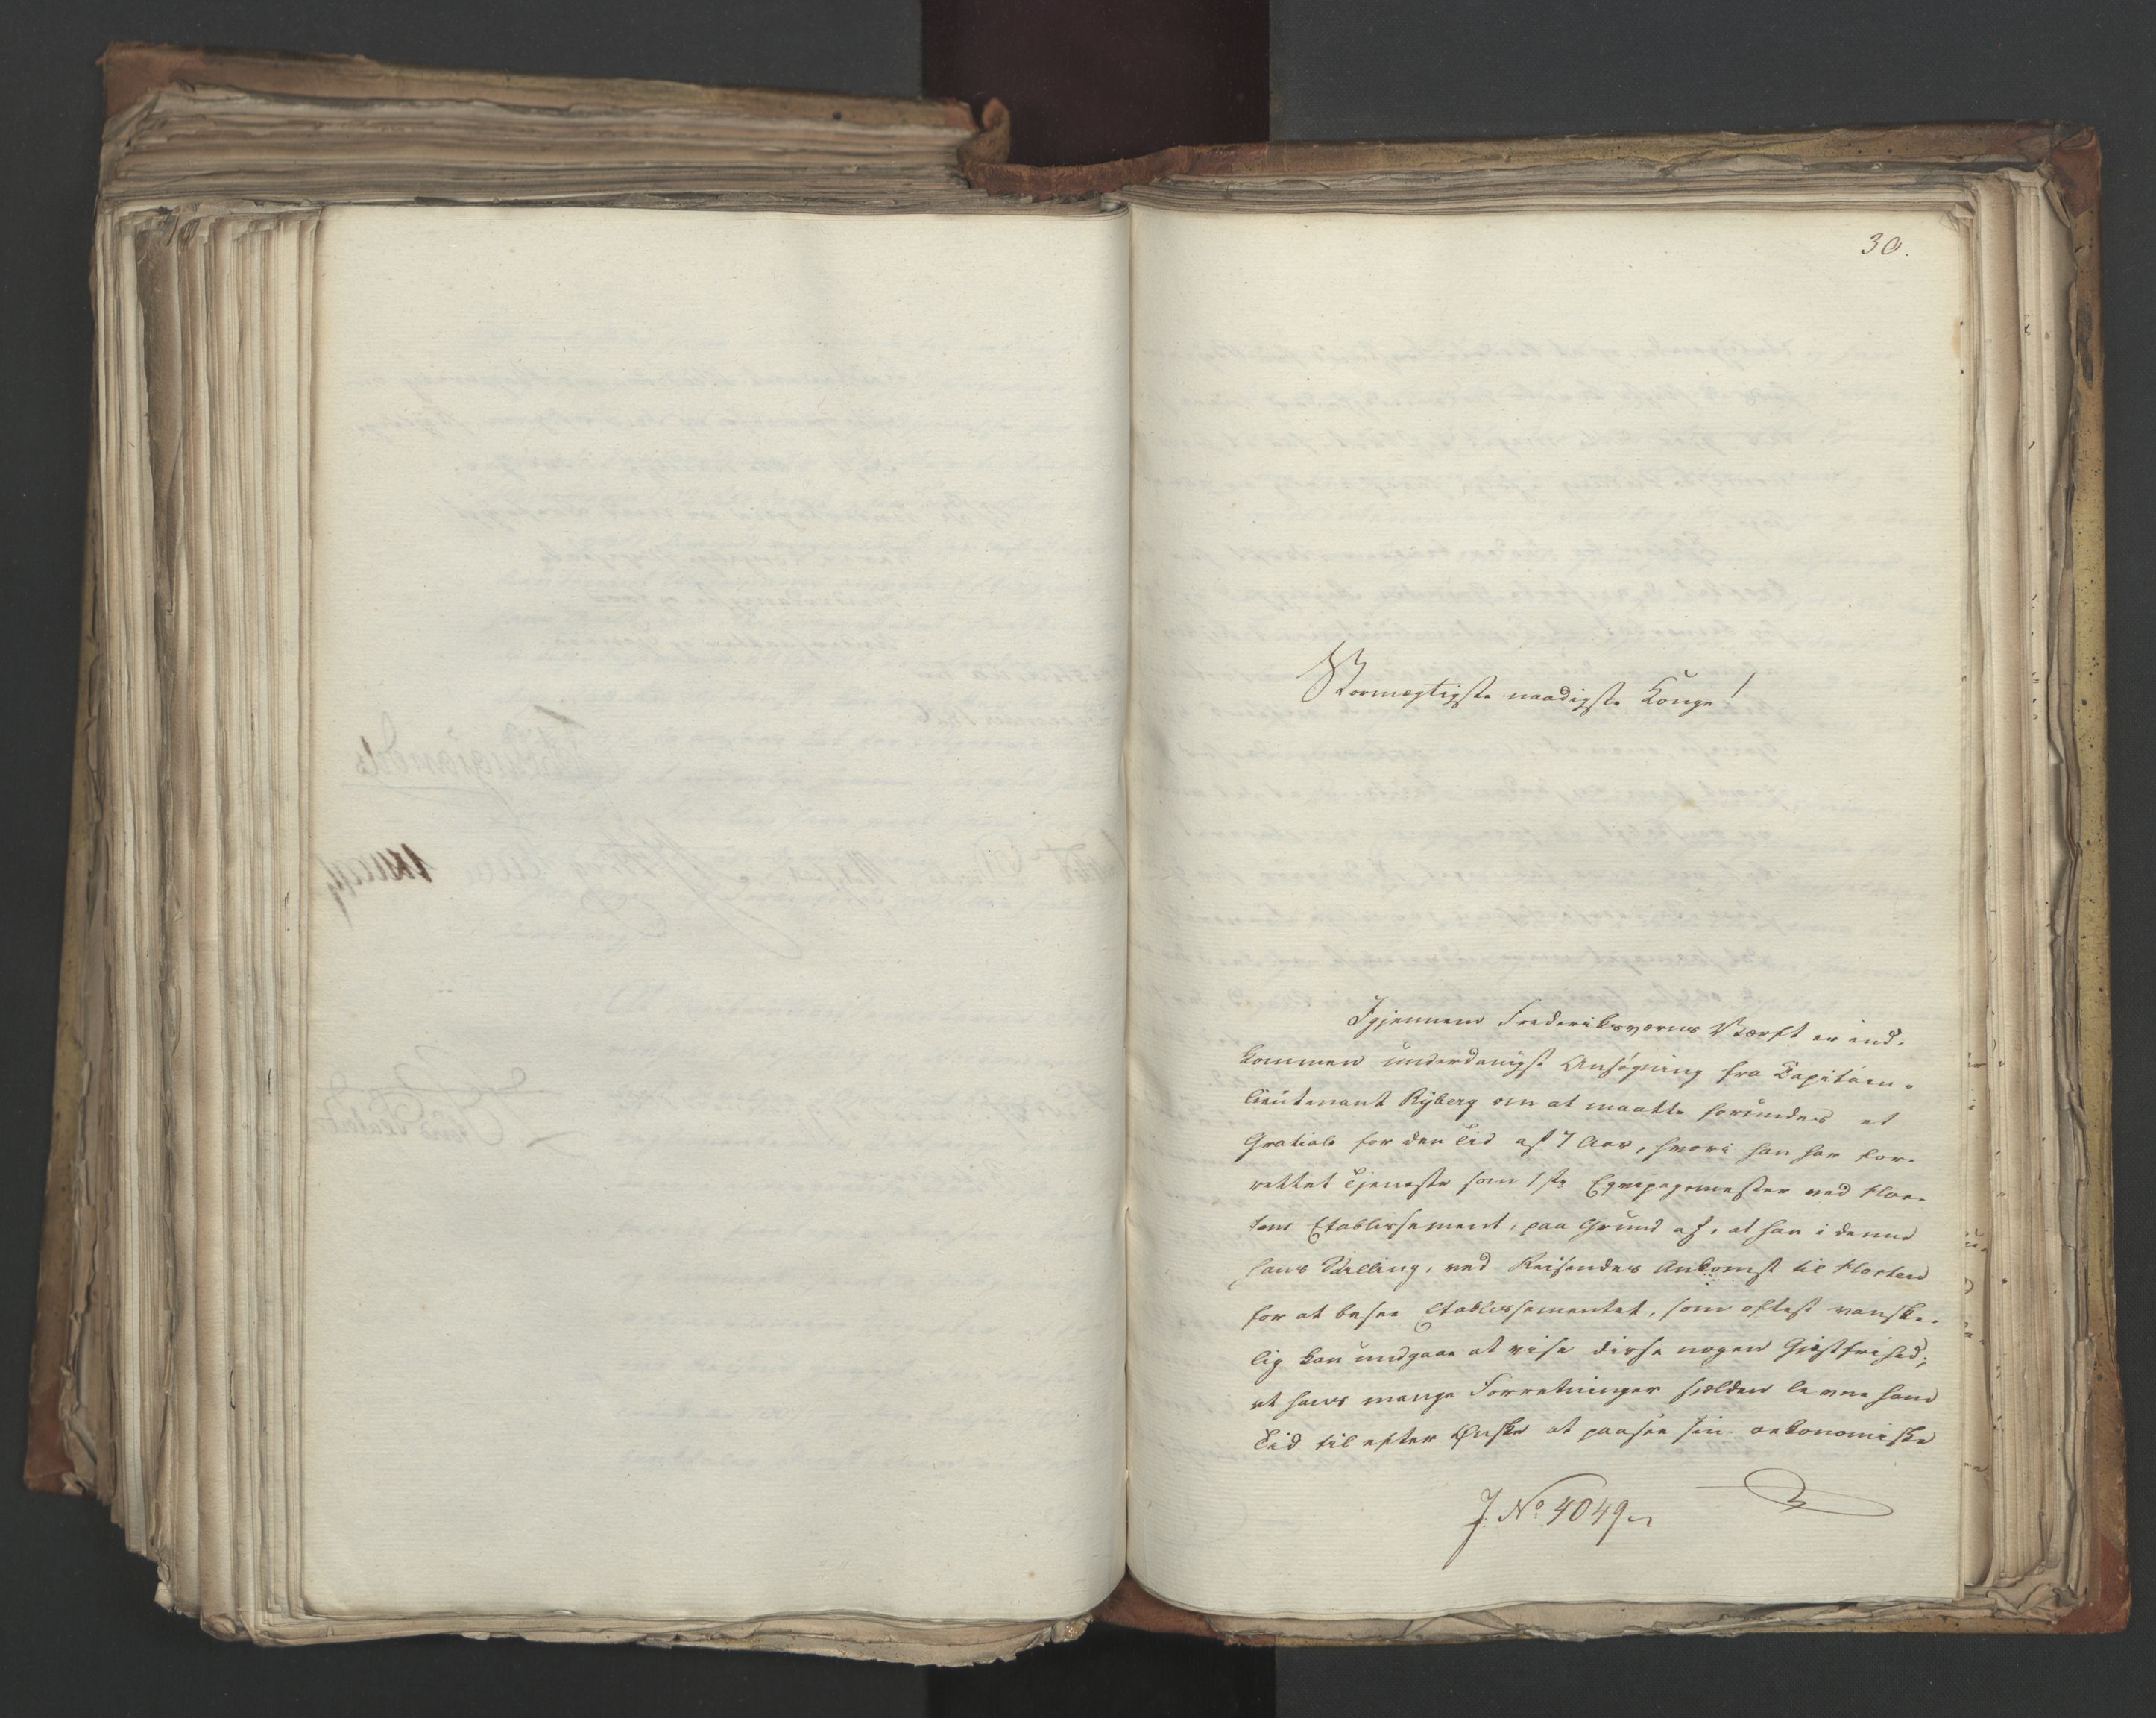 30.
Stormægtigste naadigste Konge!
Igjennem Frederiksværns Værft er ind-
kommen underdanigst Ansøgning fra Capitain-
lieutenant Ryberg om at maatte forundes et
Gratiale for den Tid af 7 Aar, hvori han har for-
rettet Tjeneste som 1ste Equipagemester ved Hor-
tens Etablissement, paa Grund af, at han i denne
hans Stilling, ved Reisendes Ankomst til Horten
for at besee Etablissementet, som oftest vanske-
lig kan undgaae at vise disse nogen Gjestfrihed;
at hans mange Forretninger sjelden levne ham
Tid til efter Ønske at paasee sin oekonomiske
J. No 4049